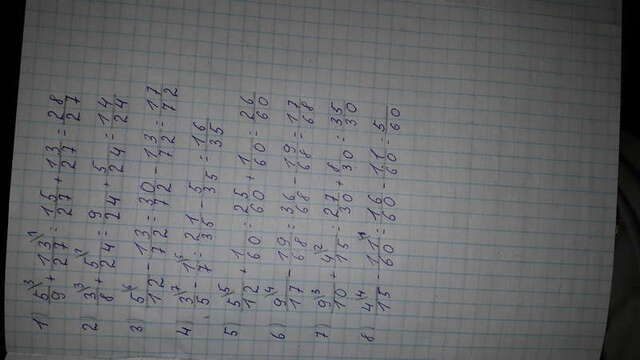 1) 5/9 + 13/27 = 15/27 + 13/27 = 28/27
2) 3/8 + 5/24 = 9/24 + 5/24 = 14/24
3) 5/12 - 13/72 = 30/72 - 13/72 = 17/72
4) 3/5 - 1/7 = 21/35 - 5/35 = 16/35
5) 5/12 + 1/60 = 25/60 + 1/60 = 26/60
6) 9/17 - 19/68 = 36/68 - 19/68 = 17/68
7) 9/10 + 4/15 = 27/30 + 8/30 = 35/30
8) 4/15 - 11/60 = 16/60 - 11/60 = 5/60